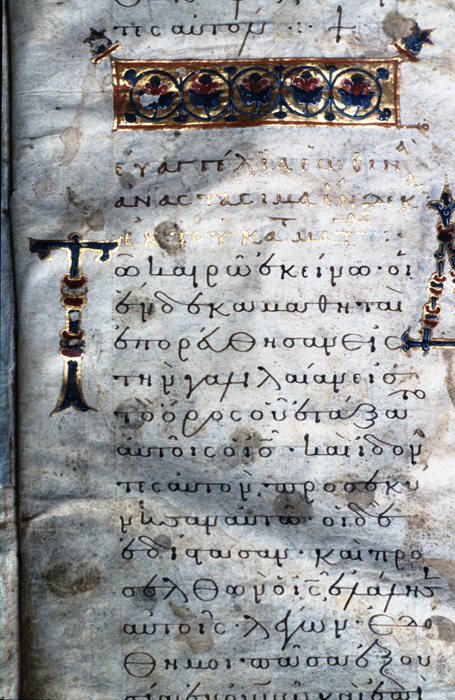 τες αυτον +
ευαγγέλια εωθιν
αναστασιμα
ἐκ τοῦ κατὰ ματθ
Τῶ καιρῶ ἐκείνω· οἱ
ἕνδεκα μαθηταὶ
ἐπορεύθησαν εἰς
τὴν γαλιλαίαν εἰς
τὸ ὄρος οὗ ἐτάξατο
αὐτοῖς ὁ ις· καὶ ἰδόν
τες αὐτὸν· προσεκύ
νησαν αὐτῶ· οἱ δὲ
ἐδίστασαν· καὶ προ
σελθὼν ὁ ις ἐλάλησεν
αὐτοῖς· λέγων· ἐδό
θη μοι πᾶσα ἐξου
σία ἐν οὐρανῶ καὶ ἐπὶ